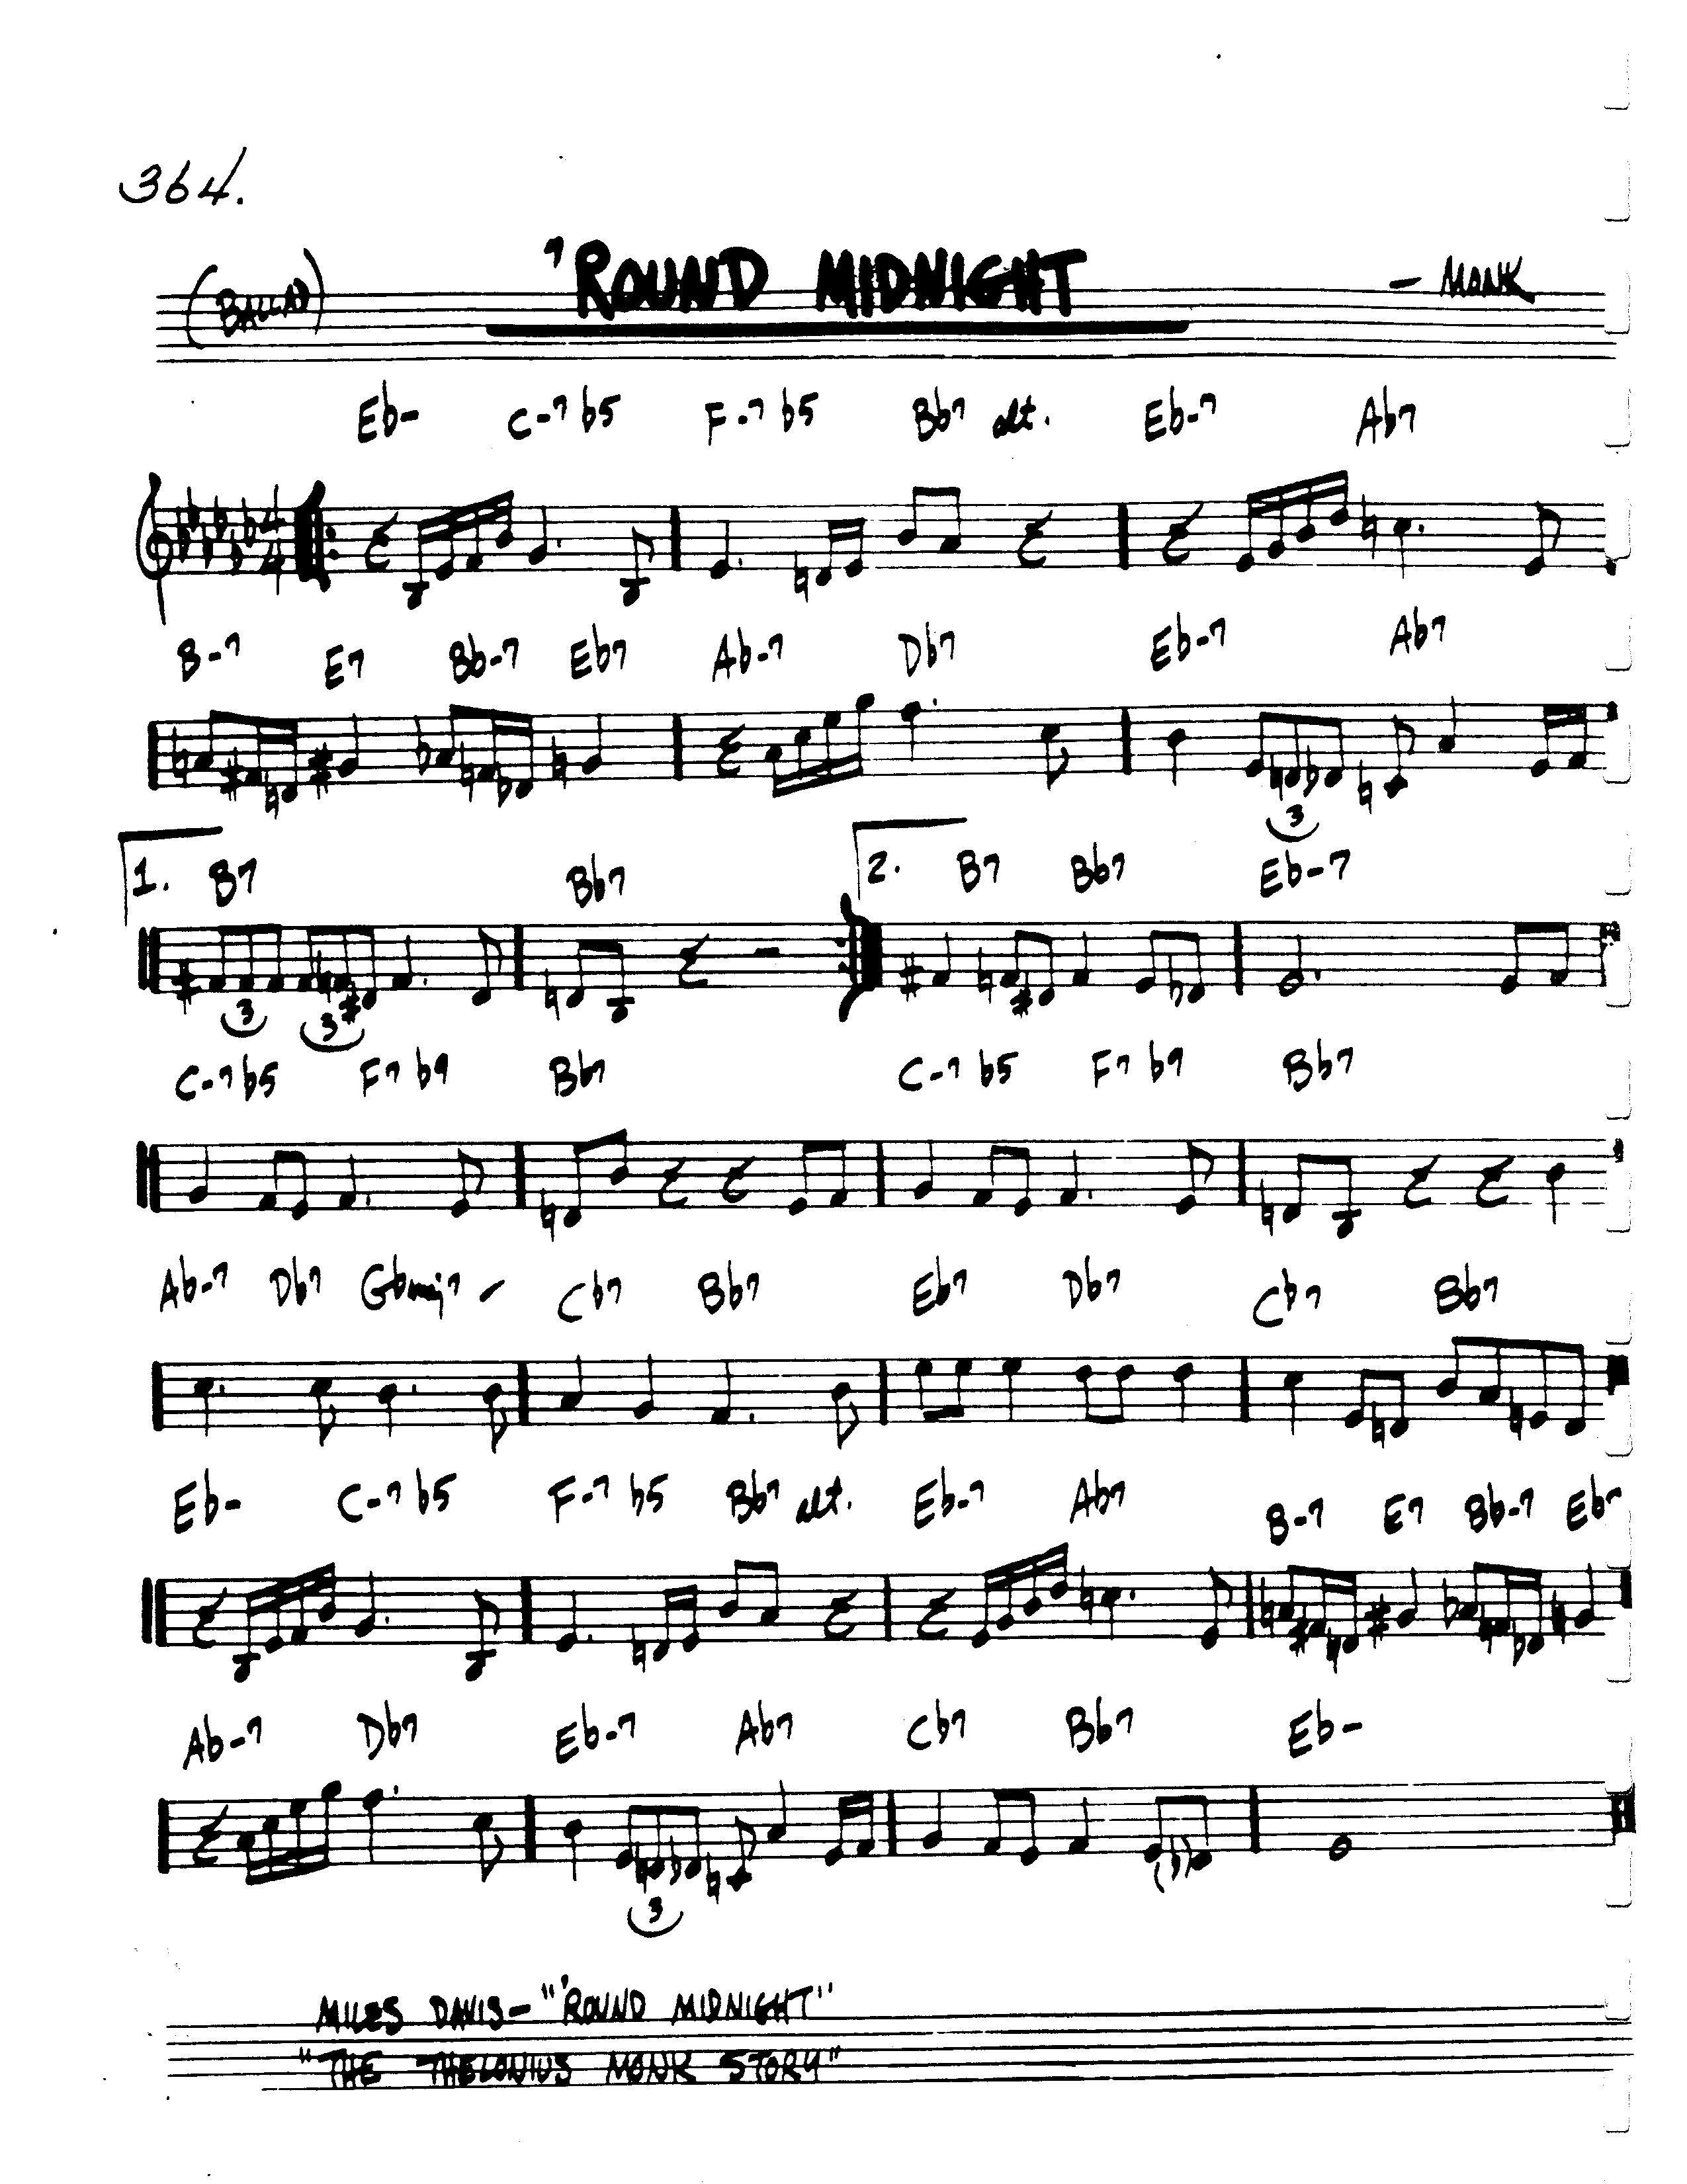 364.
(BALLAD) 'ROUND MIDNIGHT - MONK
Eb- C-7 b5 F-7 b5 Bb7 alt. Eb-7 Ab7
4
4
B-7 E7 Bb-7 Eb7 Ab-7 Db7 Eb-7 Ab7
3
1. B7 Bb7 2. B7 Bb7 Eb-7
3 3
C-7 b5 F7 b9 Bb7 C-7 b5 F7 b9 Bb7
Ab-7 Db7 Gbmaj7 - Cb7 Bb7 Eb7 Db7 Cb7 Bb7
Eb- C-7 b5 F-7 b5 Bb7 alt. Eb-7 Ab7 B-7 E7 Bb-7 Eb7
Ab-7 Db7 Eb-7 Ab7 Cb7 Bb7 Eb-
3
MILES DAVIS - "'ROUND MIDNIGHT"
"THE THELONIUS MONK STORY"